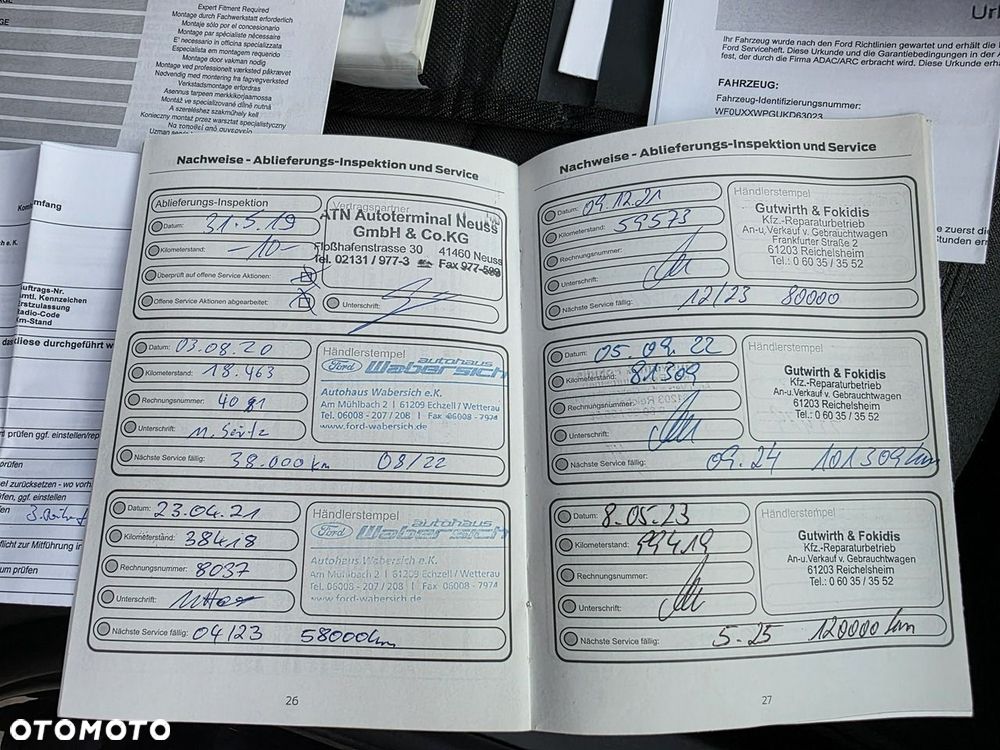 Expert Fitment Required
Montage durch Fachwerkstatt erforderlich
Montaje sólo por el concesionario
Montage par spécialiste nécessaire
E' necessario in officina specializzata
Especialista em montagem requerido
Montage door vakman nodig
Montage ved professionel værksted påkrævet
Nødvendig med montering fra fagvegverksted
Verkstadsmontage erfordras
Asennus tarpeen merkkikorjaamossa
Montáž ve specializované dílně nutná
A szereléshez szakműhely kell
Konieczny montaż przez warsztat specjalistyczny
Να τοποθετηθεί από συνεργείο
Ihr Fahrzeug wurde nach den Ford Richtlinien gewartet und erhält die
Ford Serviceheft. Diese Urkunde und die Garantiebedingungen in der A
fest, der durch die Firma ADAC/ARC erbracht wird. Diese Urkunde erha
FAHRZEUG:
Fahrzeug-Identifizierungsnummer:
WF0UXXWPGUKD63023
zuerst die
Stunden ern
mfang
uftrags-Nr.
amtl. Kennzeichen
rstzulassung
adio-Code
m-Stand
diese durchgeführt w
prüfen ggf. einstellen/rep
prüfen
el zurücksetzen - wo vorh.
fen, ggf. einstellen
flicht zur Mitführung in
um prüfen
Nachweise - Ablieferungs-Inspektion und Service
Ablieferungs-Inspektion
Datum: 31.5.19
Kilometerstand: -10-
Überprüft auf offene Service Aktionen:
Offene Service Aktionen abgearbeitet:
Vertragspartner
ATN Autoterminal Neuss
GmbH & Co.KG
Floßhafenstrasse 30 41460 Neuss
Tel. 02131 / 977-3 Fax 977-599
Unterschrift:
Datum: 03.08.20
Kilometerstand: 18.463
Rechnungsnummer: 4081
Unterschrift: M. Seitz
Händlerstempel
Ford autohaus
Wabersich
Autohaus Wabersich e.K.
Am Mühlbach 2 | 61209 Echzell / Wetterau
Tel. 06008 - 207 / 208 | Fax 06008 - 7974
www.ford-wabersich.de
Nächste Service fällig: 38.000 km 08/22
Datum: 23.04.21
Kilometerstand: 38418
Rechnungsnummer: 8037
Unterschrift:
Händlerstempel
Ford autohaus
Wabersich
Autohaus Wabersich e.K.
Am Mühlbach 2 | 61209 Echzell / Wetterau
Tel. 06008 - 207 / 208 | Fax 06008 - 7974
www.ford-wabersich.de
Nächste Service fällig: 04/23 58000km
26
Nachweise - Ablieferungs-Inspektion und Service
Datum: 09.12.21
Kilometerstand: 59573
Rechnungsnummer:
Unterschrift:
Händlerstempel
Gutwirth & Fokidis
Kfz.-Reparaturbetrieb
An-u,Verkauf v. Gebrauchtwagen
Frankfurter Straße 2
61203 Reichelsheim
Tel.: 0 60 35 / 35 52
Nächste Service fällig: 12/23 80000
Datum: 05.09.22
Kilometerstand: 81309
Rechnungsnummer:
Unterschrift:
Händlerstempel
Gutwirth & Fokidis
Kfz.-Reparaturbetrieb
An-u.Verkauf v. Gebrauchtwagen
61203 Reichelsheim
Tel.: 0 60 35 / 35 52
Nächste Service fällig: 09.24 101309km
Datum: 8.05.23
Kilometerstand: 99419
Rechnungsnummer:
Unterschrift:
Händlerstempel
Gutwirth & Fokidis
Kfz.-Reparaturbetrieb
An-u.Verkauf v. Gebrauchtwagen
61203 Reichelsheim
Tel.: 0 60 35 / 35 52
Nächste Service fällig: 5-25 120000 km
27
OTOMOTO